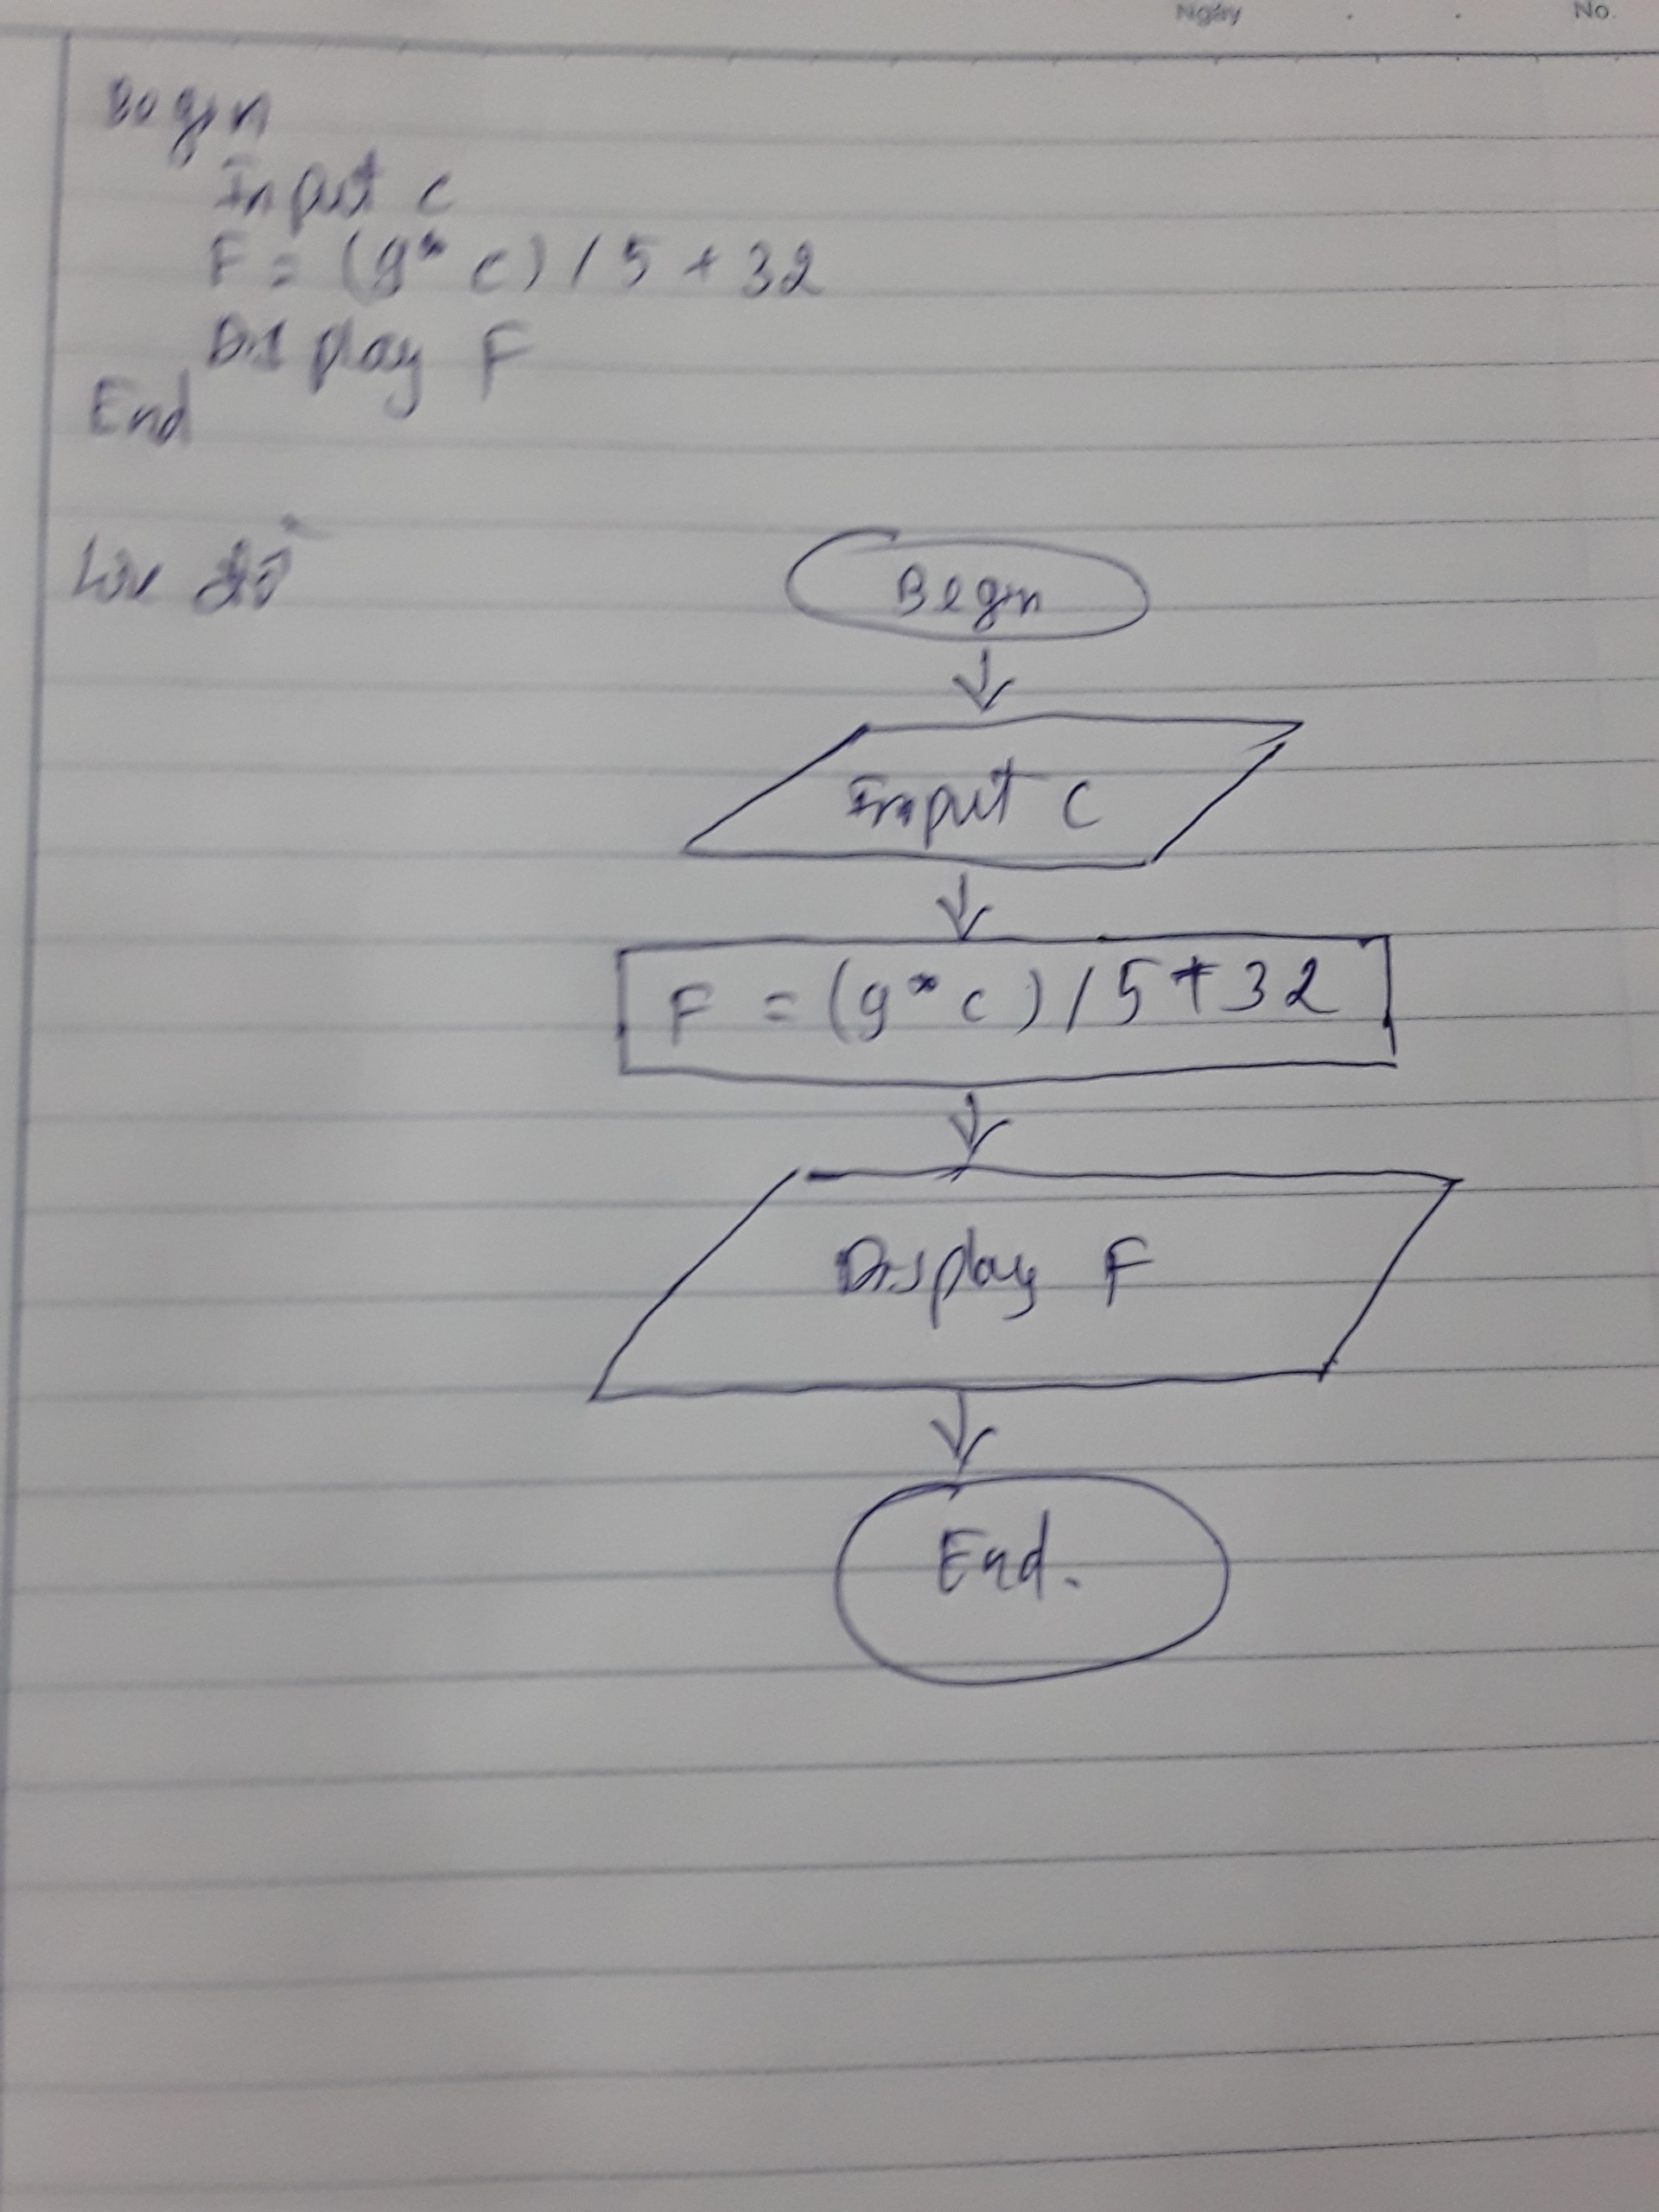 Ngày . . No.
Begin
Input C
F = (9* C) / 5 + 32
Display F
End
Lưu đồ
Begin
Input C
F = (9* C) / 5 + 32
Display F
End.